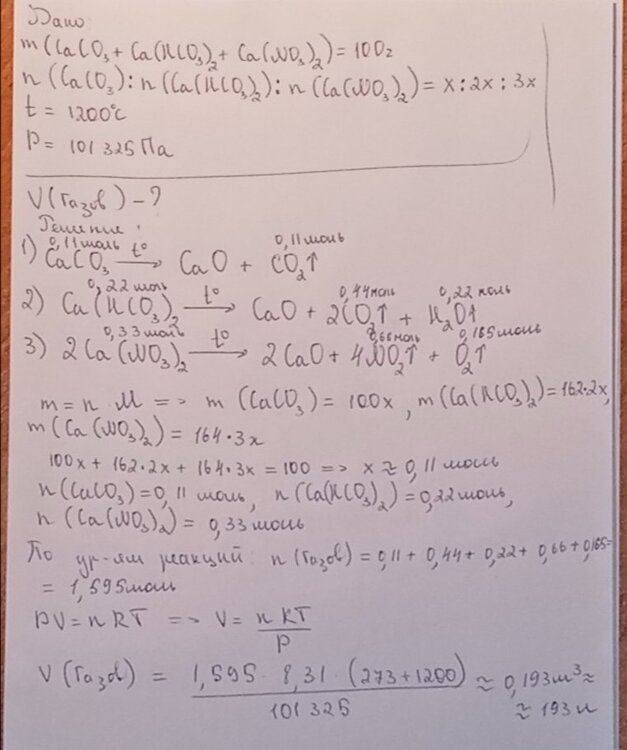 Дано:
m(CaCO₃ + Ca(HCO₃)₂ + Ca(NO₃)₂) = 100г
n(CaCO₃) : n(Ca(HCO₃)₂) : n(Ca(NO₃)₂) = x : 2x : 3x
t = 1200°C
P = 101 325 Па
V(газов) - ?
Решение:
0,11 моль 0,11 моль
1) CaCO₃ —t°→ CaO + CO₂↑
0,22 моль 0,44 моль 0,22 моль
2) Ca(HCO₃)₂ —t°→ CaO + 2CO₂↑ + H₂O↑
0,33 моль 0,66 моль 0,165 моль
3) 2Ca(NO₃)₂ —t°→ 2CaO + 4NO₂↑ + O₂↑
m = n · M => m(CaCO₃) = 100x, m(Ca(HCO₃)₂) = 162·2x,
m(Ca(NO₃)₂) = 164·3x
100x + 162·2x + 164·3x = 100 => x ≈ 0,11 моль
n(CaCO₃) = 0,11 моль, n(Ca(HCO₃)₂) = 0,22 моль,
n(Ca(NO₃)₂) = 0,33 моль
По ур-ям реакций: n(газов) = 0,11 + 0,44 + 0,22 + 0,66 + 0,165 =
= 1,595 моль
PV = nRT => V = nRT / P
V(газов) = 1,595 · 8,31 · (273+1200) / 101 325 ≈ 0,193 м³ ≈
≈ 193 л